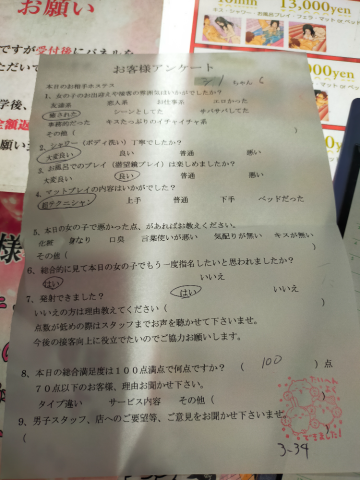 お願い
13,000yen
お客様アンケート
本日のお相手ホステス
ちゃん
1、女の子のお出迎えや接客の雰囲気はいかがでしたか?
友達系 恋人系 お仕事系 エロかった
癒された シーンとしてた サバサバしてた
事務的だった キスたっぷりのイチャイチャ系
その他(
2、シャワー(ボディ洗い)丁寧でしたか?
大変良い 良い 普通 悪い
3、お風呂でのプレイ(潜望鏡プレイ)は楽しめましたか?
大変良い 良い 普通 悪い
4、マットプレイの内容はいかがでした?
超テクニシャン 上手 普通 下手 ベッドだった
5、本日の女の子で悪かった点、があればお教えください。
口臭 言葉使いが悪い 気配りが無い キスが無い
その他( )
6、総合的に見て本日の女の子でもう一度指名したいと思われましたか?
はい いいえ
7、発射できました? はい いいえ
いいえの方は理由教えてください( )
点数が低めの際はスタッフまでお声を聴かせて下さいませ。
今後の接客向上に役立てたいのでご協力お願いします。
8、本日の総合満足度は100点満点で何点ですか? ( 100 )点
70点以下のお客様、理由お聞かせ下さい。
タイプ違い サービス内容 その他(
9、男子スタッフ、店へのご要望等、ご意見をお聞かせ下さいませ。
(
3-34